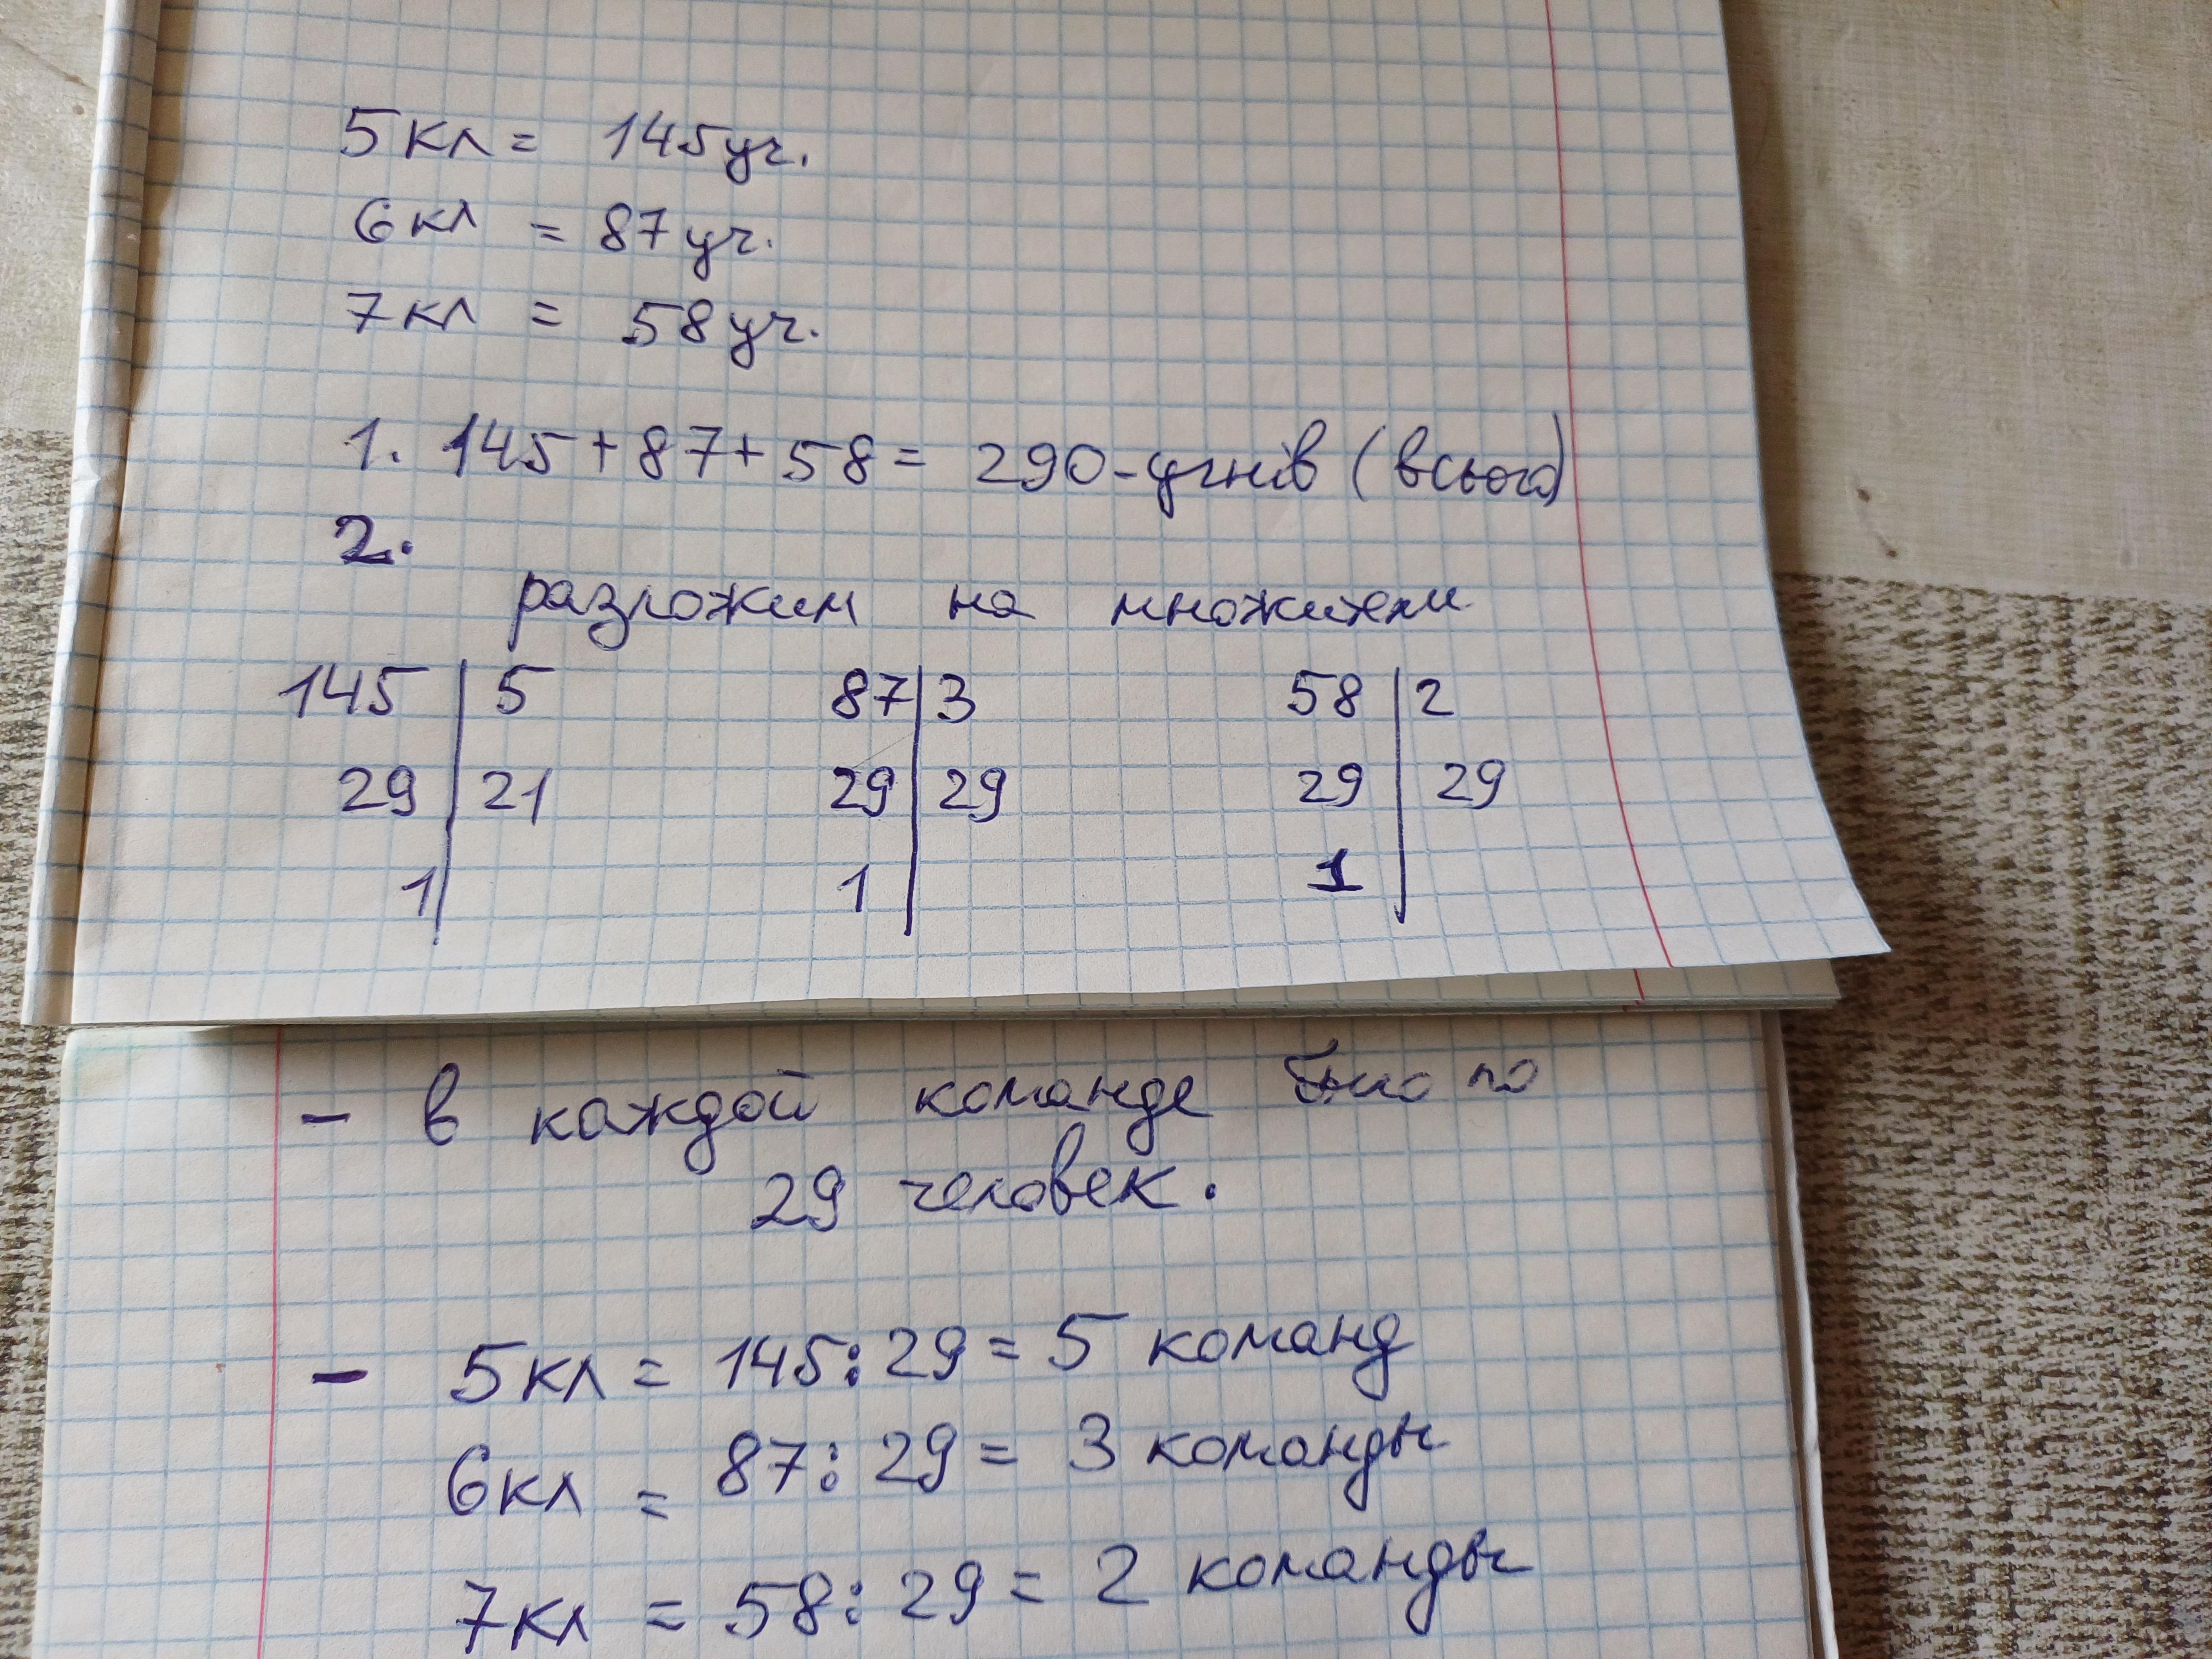 5 кл = 145 уч.
6 кл = 87 уч.
7 кл = 58 уч.
1. 145 + 87 + 58 = 290 - учнів (всього)
2.
разложим на множители
145 | 5 87 | 3 58 | 2
29 | 21 29 | 29 29 | 29
1 | 1 | 1 |
- в каждой команде было по
29 человек.
- 5 кл = 145 : 29 = 5 команд
6 кл = 87 : 29 = 3 команды
7 кл = 58 : 29 = 2 команды